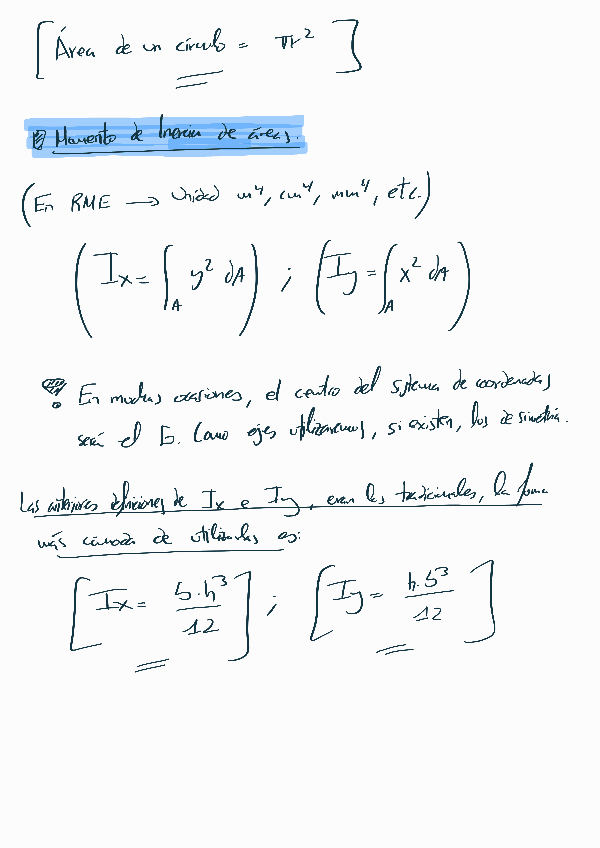 [Área de un círculo = πr²]
Momento de Inercia de áreas.
(En RME → Unidad m⁴, cm⁴, mm⁴, etc.)
(Ix = ∫_A y² dA) ; (Iy = ∫_A x² dA)
En muchas ocasiones, el centro del sistema de coordenadas
será el G. Como ejes utilizaremos, si existen, los de simetría.
Las anteriores definiciones de Ix e Iy, eran las tradicionales, la forma
más cómoda de utilizarlas es:
[Ix = b·h³/12] ; [Iy = h·b³/12]